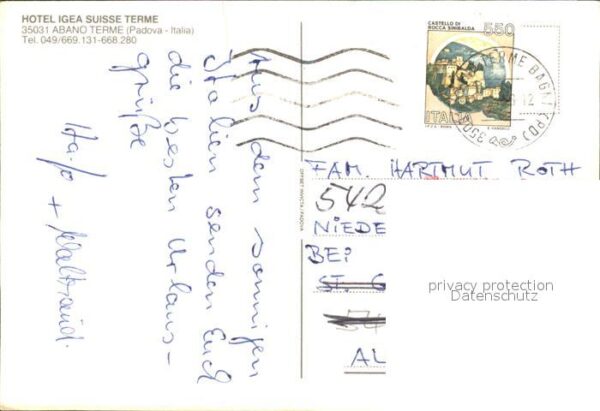 HOTEL IGEA SUISSE TERME
35031 ABANO TERME (Padova - Italia)
Tel. 049/669.131-668.280
Aus dem sonnigen
Italien senden Euch
die besten Urlaus-
grüße
Hajo + Waltraud.
OFFSET INVICTA/PADOVA
CASTELLO DI
ROCCA SINIBALDA
550
ITALIA
TERME BAGNI (PD)
FAM. HARTMUT ROTH
542
NIEDE
BEI
ST. G
54
AL
privacy protection
Datenschutz